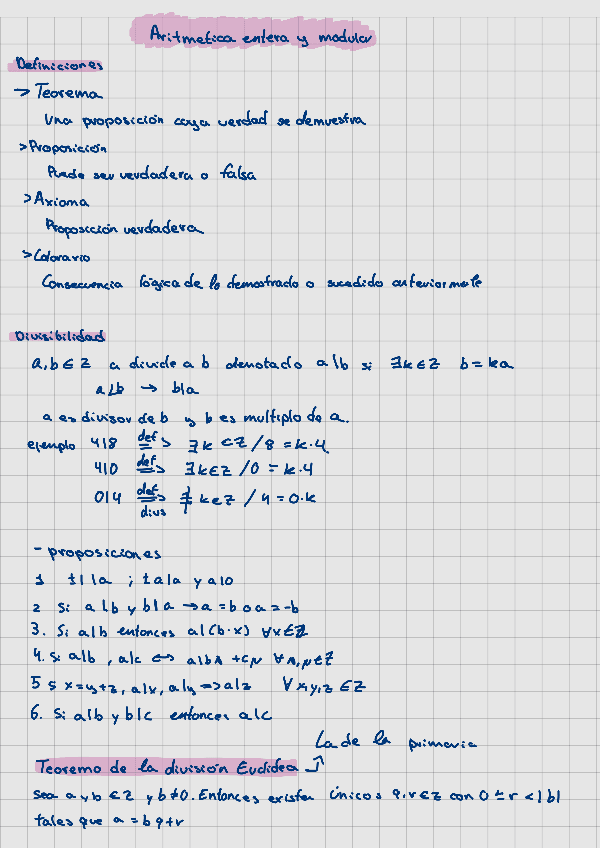 Aritmetica entera y modular
Definiciones
→ Teorema
Una proposición cuya verdad se demuestra
> Proposición
Puede ser verdadera o falsa
> Axioma
Proposición verdadera
> Colorario
Consecuencia lógica de lo demostrado o sucedido anteriormente
Divisibilidad
a, b ∈ Z a divide a b denotado a|b si ∃k∈Z b = ka
a∠b → b|a
a es divisor de b y b es multiplo de a.
ejemplo 4|8 def ⟹ ∃ k ∈ Z / 8 = k·4
4|0 def ⟹ ∃k∈Z / 0 = k·4
0|4 def ⟹ divis ∄ k∈Z / 4 = 0·k
- proposiciones
1 ±1|a ; ±a|a y a|0
2 Si a|b y b|a → a = b o a = -b
3. Si a|b entonces a|(b·x) ∀x∈Z
4. Si a|b, a|c ⟺ a|bλ + cμ ∀λ,μ∈Z
5 s x=y+z, a|x, a|y ⟹ a|z ∀x,y,z ∈Z
6. Si a|b y b|c entonces a|c
La de la primaria
Teoremo de la división Euclidea
sea a y b ∈ Z y b≠0. Entonces existen únicos q,r∈Z con 0 ≤ r < |b|
tales que a = bq+r